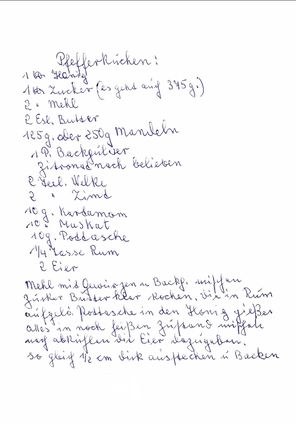 Pfefferkuchen:
1 kg Honig
1 kg Zucker (es geht auf 375g.)
2 " Mehl
2 Esl. Butter
125g. oder 250g Mandeln
1 P. Backpulver
Zitronat nach belieben
2 Teel. Nelke
2 " Zimt
10g. Kardamom
10" Muskat
10g. Pottasche
1/4 Tasse Rum
2 Eier
Mehl mit Gewürzen u Backp. mischen
Zucker Butter klar kochen, die in Rum
aufgelö. Pottasche in den Honig gießen
alles in noch heißen Zustand mischen
nach abkühlen die Eier dazugeben.
so gleich 1/2 cm dick ausstechen u Backen